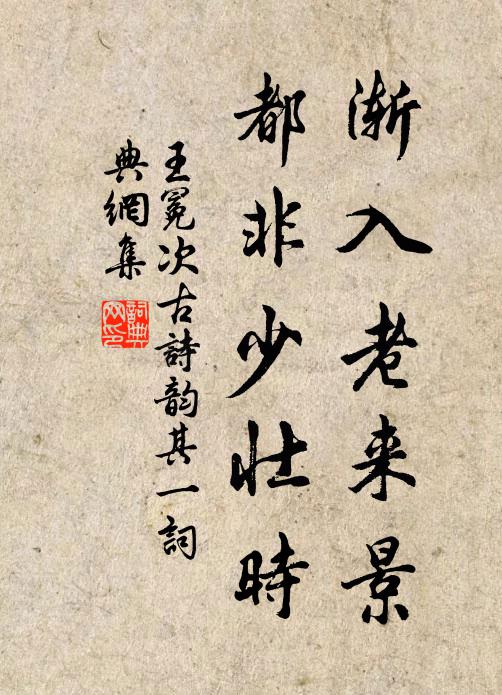 渐入老来景
都非少壮時
王冕次古詩韵其一詞
典網集
詞典网印